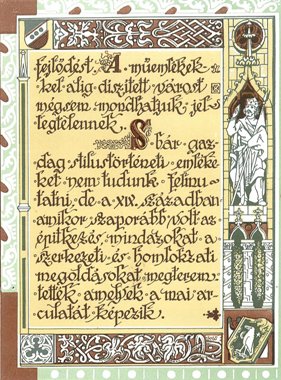 fejlődést. A műemlékek-
kel alig díszített várost
mégsem mondhatjuk jel-
legtelennek.
S bár gaz-
dag stílustörténeti emléke-
ket nem tudunk felmu-
tatni, de a XIX. században
amikor szaporább volt az
építkezés, mindazokat a
szerkezeti és homlokzati
megoldásokat megterem-
tették, amelyek a mai ar-
culatát képezik.